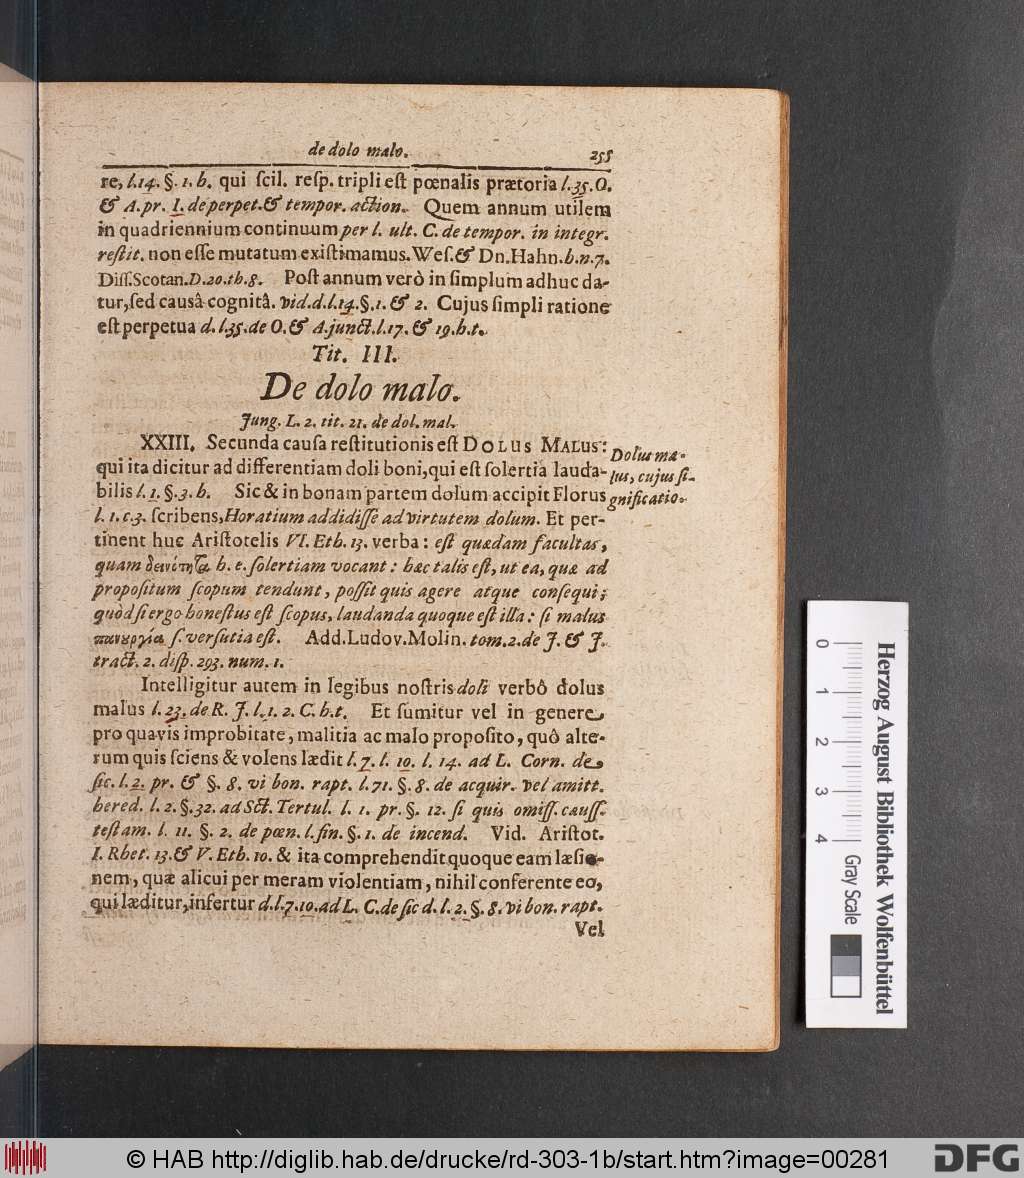 de dolo malo. 255
re, l.14. §. 1. h. qui scil. resp. tripli est pœnalis prætoria l.35. O.
& A. pr. I. de perpet. & tempor. action. Quem annum utilem
in quadriennium continuum per l. ult. C. de tempor. in integr.
restit. non esse mutatum existimamus. Wes. & Dn. Hahn. h. n. 7.
Diss. Scotan. D. 20. th. 8. Post annum verò in simplum adhuc da-
tur, sed causâ cognitâ. vid. d. l. 14. §. 1. & 2. Cujus simpli ratione
est perpetua d. l. 35. de O. & A. junct. l. 17. & 19. h. t.
Tit. III.
De dolo malo.
Jung. L. 2. tit. 21. de dol. mal.
XXIII. Secunda causa restitutionis est DOLUS MALUS:
qui ita dicitur ad differentiam doli boni, qui est solertia lauda-
bilis l. 1. §. 3. h. Sic & in bonam partem dolum accipit Florus
l. 1. c. 3. scribens, Horatium addidisse ad virtutem dolum. Et per-
tinent huc Aristotelis VI. Eth. 13. verba: est quædam facultas,
quam δεινότητα h. e. solertiam vocant: hæc talis est, ut ea, quæ ad
propositum scopum tendunt, possit quis agere atque consequi;
quòd si ergo honestus est scopus, laudanda quoque est illa: si malus
πανουργία s. versutia est. Add. Ludov. Molin. tom. 2. de J. & J.
tract. 2. disp. 293. num. 1.
Intelligitur autem in legibus nostris doli verbô dolus
malus l. 23. de R. J. l. 1. 2. C. h. t. Et sumitur vel in genere
pro quavis improbitate, malitia ac malo proposito, quô alte-
rum quis sciens & volens lædit l. 7. l. 10. l. 14. ad L. Corn. de
sic. l. 2. pr. & §. 8. vi bon. rapt. l. 71. §. 8. de acquir. vel amitt.
hered. l. 2. §. 32. ad Sct. Tertul. l. 1. pr. §. 12. si quis omiss. causs.
testam. l. 11. §. 2. de pœn. l. fin. §. 1. de incend. Vid. Aristot.
I. Rhet. 13. & V. Eth. 10. & ita comprehendit quoque eam læsio-
nem, quæ alicui per meram violentiam, nihil conferente eo,
qui læditur, infertur d. l. 7. 10. ad L. C. de sic d. l. 2. §. 8. vi bon. rapt.
Vel
Dolus ma-
lus, cujus si-
gnificatio.
0 1 2 3 4
Gray Scale
Herzog August Bibliothek Wolfenbüttel
© HAB http://diglib.hab.de/drucke/rd-303-1b/start.htm?image=00281
DFG